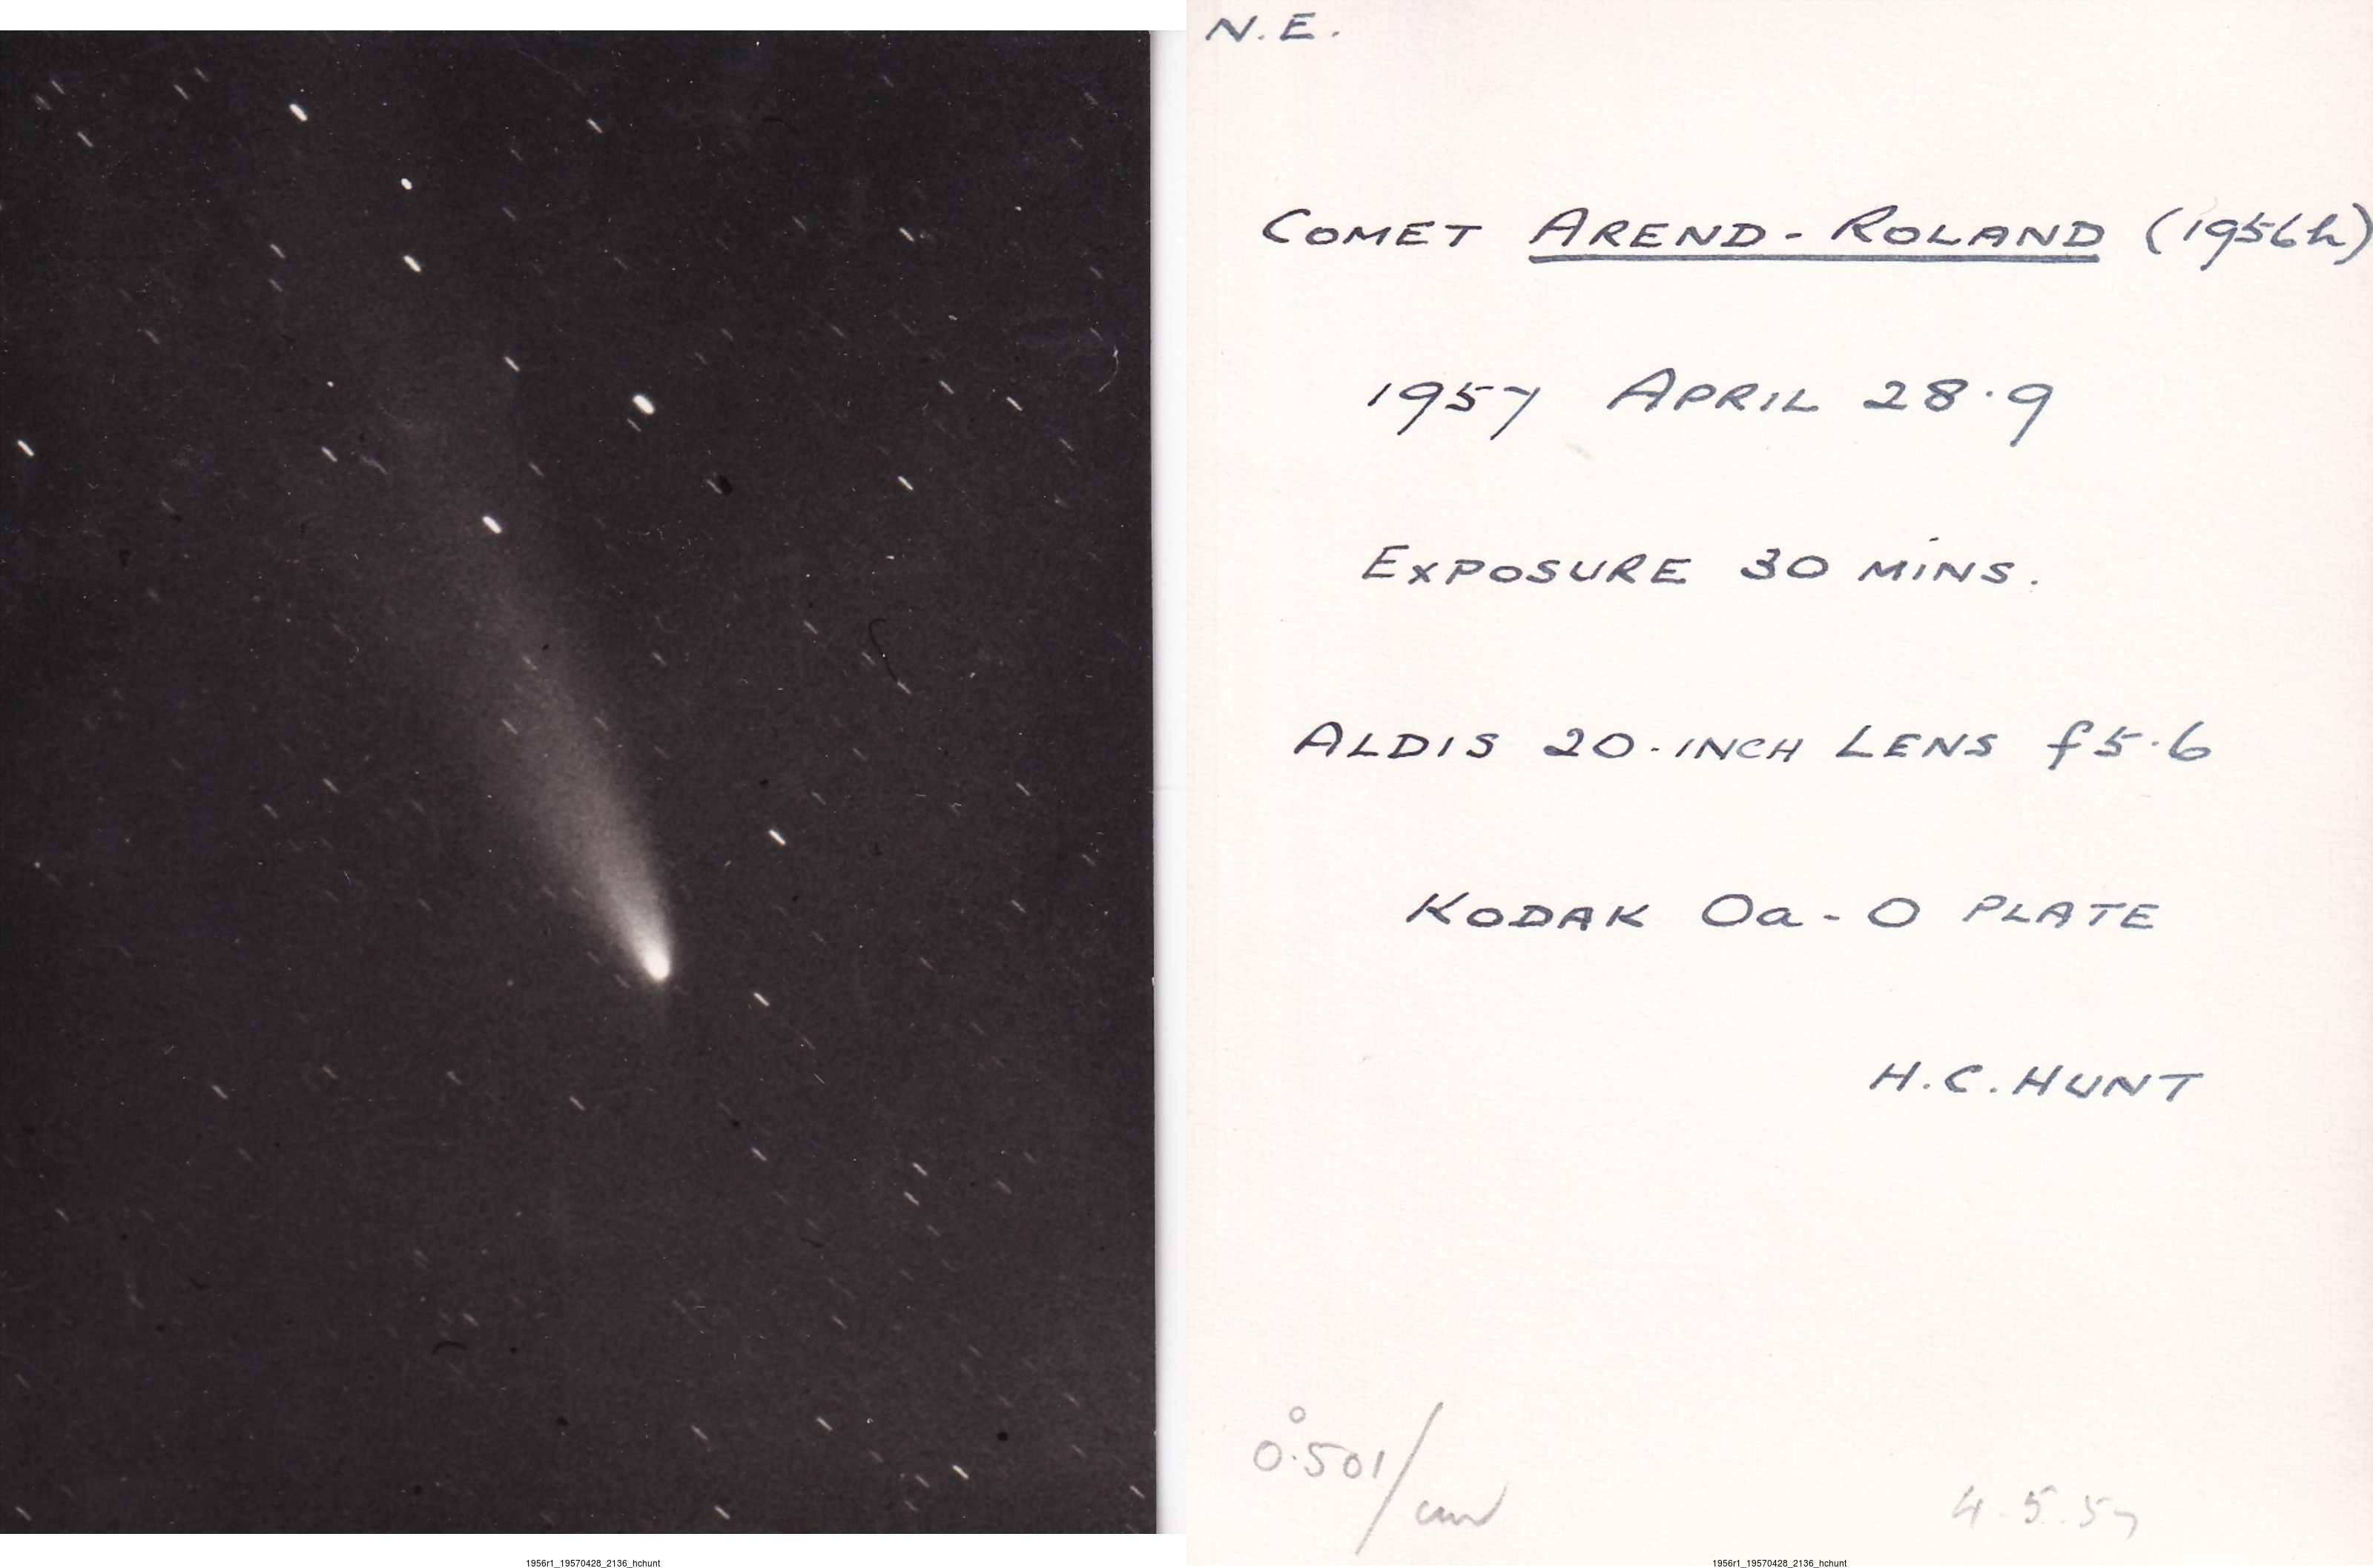 N.E.
COMET AREND-ROLAND (1956h)
1957 APRIL 28.9
EXPOSURE 30 MINS.
ALDIS 20-INCH LENS f5.6
KODAK Oa-O PLATE
H.C. HUNT
0°.501/cm
4.5.57
1956r1_19570428_2136_hchunt
1956r1_19570428_2136_hchunt